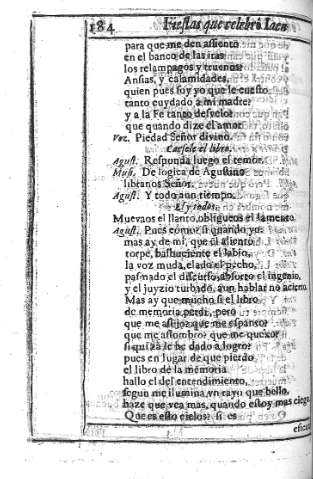 184 Fiestas que celebrò Iaen
para que me den assiento
en el banco de las iras
los relampagos y truenos?
Ansias, y calamidades,
quien pues soy yo que le cuesto
tanto cuydado a mi madre?
y a la Fe tanto desvelo?
que quando dize el amor
Voz. Piedad Señor divino.
Caesele el libro.
Agust. Responda luego el temor.
Musi. De logica de Agustino
libranos Señor.
Agust. Y todo a un tiempo.
El y todos.
Muevaos el llanto, obligueos el lamento.
Agust. Pues como, si quando yo
mas ay de mi, que el aliento
torpe, balbuciente el labio,
la voz muda, elado el pecho,
pasmado el discurso, absorto el ingenio,
y el juyzio turbado, aun hablar no acierto
Mas ay que mucho si el libro
de memoria perdi, pero
que me aflijo? que me espanto?
que me assombro? que me quexo?
si quiza le he dado a logro?
pues en lugar de que pierdo
el libro de la memoria
hallo el del entendimiento,
segun me ilumina vn rayo que bello,
haze que vea mas, quando estoy mas ciego,
Que es esto cielos? si es